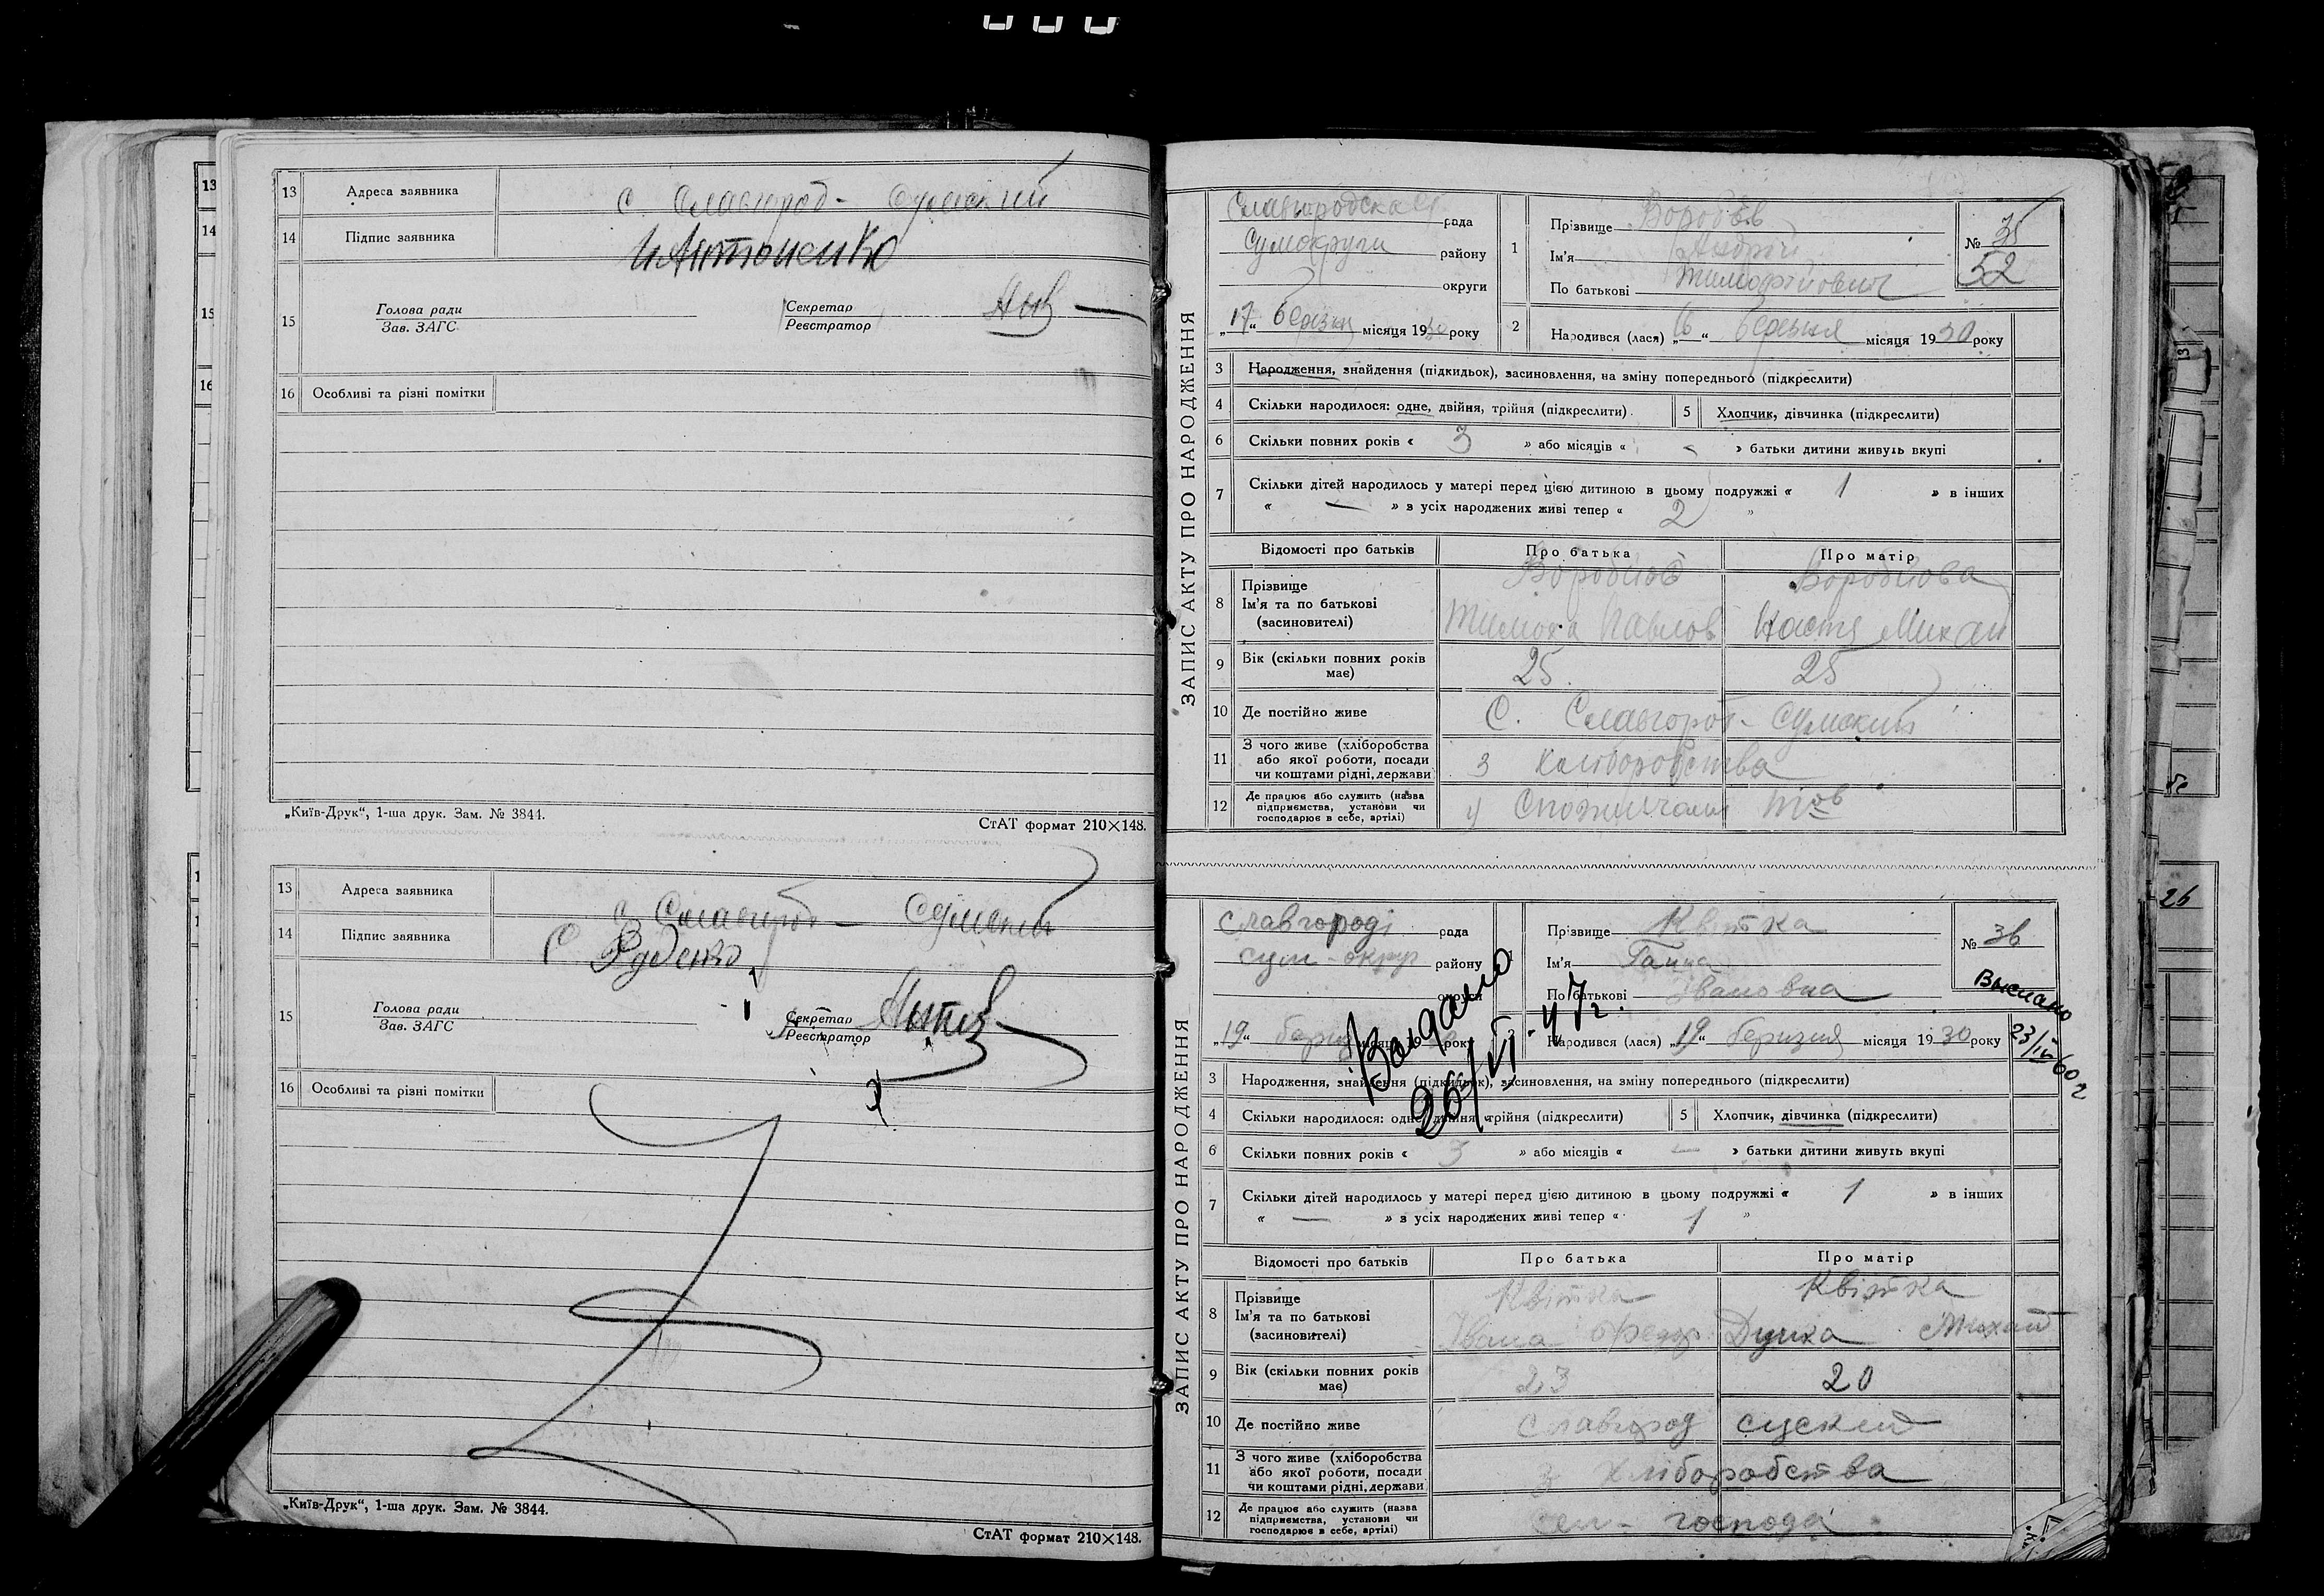 13 Адреса заявника с. Славгород - Сумский
14 Підпис заявника И Антоненко
15 Голова ради
Зав. ЗАГС
Секретар
Реєстратор
16 Особливі та різні помітки
„Київ-Друк“, 1-ша друк. Зам. № 3844.
СтАТ формат 210×148.
13 Адреса заявника с Славгород - Сумский
14 Підпис заявника С Руденко
15 Голова ради
Зав. ЗАГС
Секретар
Реєстратор
16 Особливі та різні помітки
„Київ-Друк“, 1-ша друк. Зам. № 3844.
СтАТ формат 210×148.
ЗАПИС АКТУ ПРО НАРОДЖЕННЯ
Славгородская рада
Сумокруги району
округи
„17“ березня місяця 1930 року
1 Прізвище
Ім'я Андрій
По батькові Тимофійович
№ 35
52
2 Народився (лася) „16“ березня місяця 1930 року
3 Народження, знайдення (підкидьок), засиновлення, на зміну попереднього (підкреслити)
4 Скільки народилося: одне, двійня, трійня (підкреслити).
5 Хлопчик, дівчинка (підкреслити)
6 Скільки повних років « 3 » або місяців « - » батьки дитини живуть вкупі
7 Скільки дітей народилось у матері перед цією дитиною в цьому подружжі « 1 » в інших
« — » з усіх народжених живі тепер « 2 »
Відомості про батьків Про батька Про матір
8 Прізвище
Ім'я та по батькові
(засиновителі)
Воробйов Воробйова
Тимоха Павлов Настя Михай
9 Вік (скільки повних років має) 25 25
10 Де постійно живе С. Славгород - Сумский
11 З чого живе (хліборобства
або якої роботи, посади
чи коштами рідні, держави
12 Де працює або служить (назва
підприємства, установи чи
господарює в себе, артілі)
ЗАПИС АКТУ ПРО НАРОДЖЕННЯ
Славгороді рада
Сум-округ району
округи
„19“ місяця року
Прізвище Квітка
Ім'я Ганна
По батькові Івановна
№ 36
Выслано
23/IV 60 г
Выдано
26/VI-47г.
Народився (лася) „19“ березня місяця 1930 року
3 Народження, знайдення (підкидьок), засиновлення, на зміну попереднього (підкреслити)
4 Скільки народилося: одне, двійня, трійня (підкреслити)
5 Хлопчик, дівчинка (підкреслити)
6 Скільки повних років « 3 » або місяців « — » батьки дитини живуть вкупі
7 Скільки дітей народилось у матері перед цією дитиною в цьому подружжі « 1 » в інших
« — » з усіх народжених живі тепер « 1 »
Відомості про батьків Про батька Про матір
8 Прізвище
Ім'я та по батькові
(засиновителі)
Квітка Квітка
Івана Федор Дунка Михай
9 Вік (скільки повних років має) 23 20
10 Де постійно живе Славгород
11 З чого живе (хліборобства
або якої роботи, посади
чи коштами рідні, держави
з хліборобства
12 Де працює або служить (назва
підприємства, установи чи
господарює в себе, артілі)
26